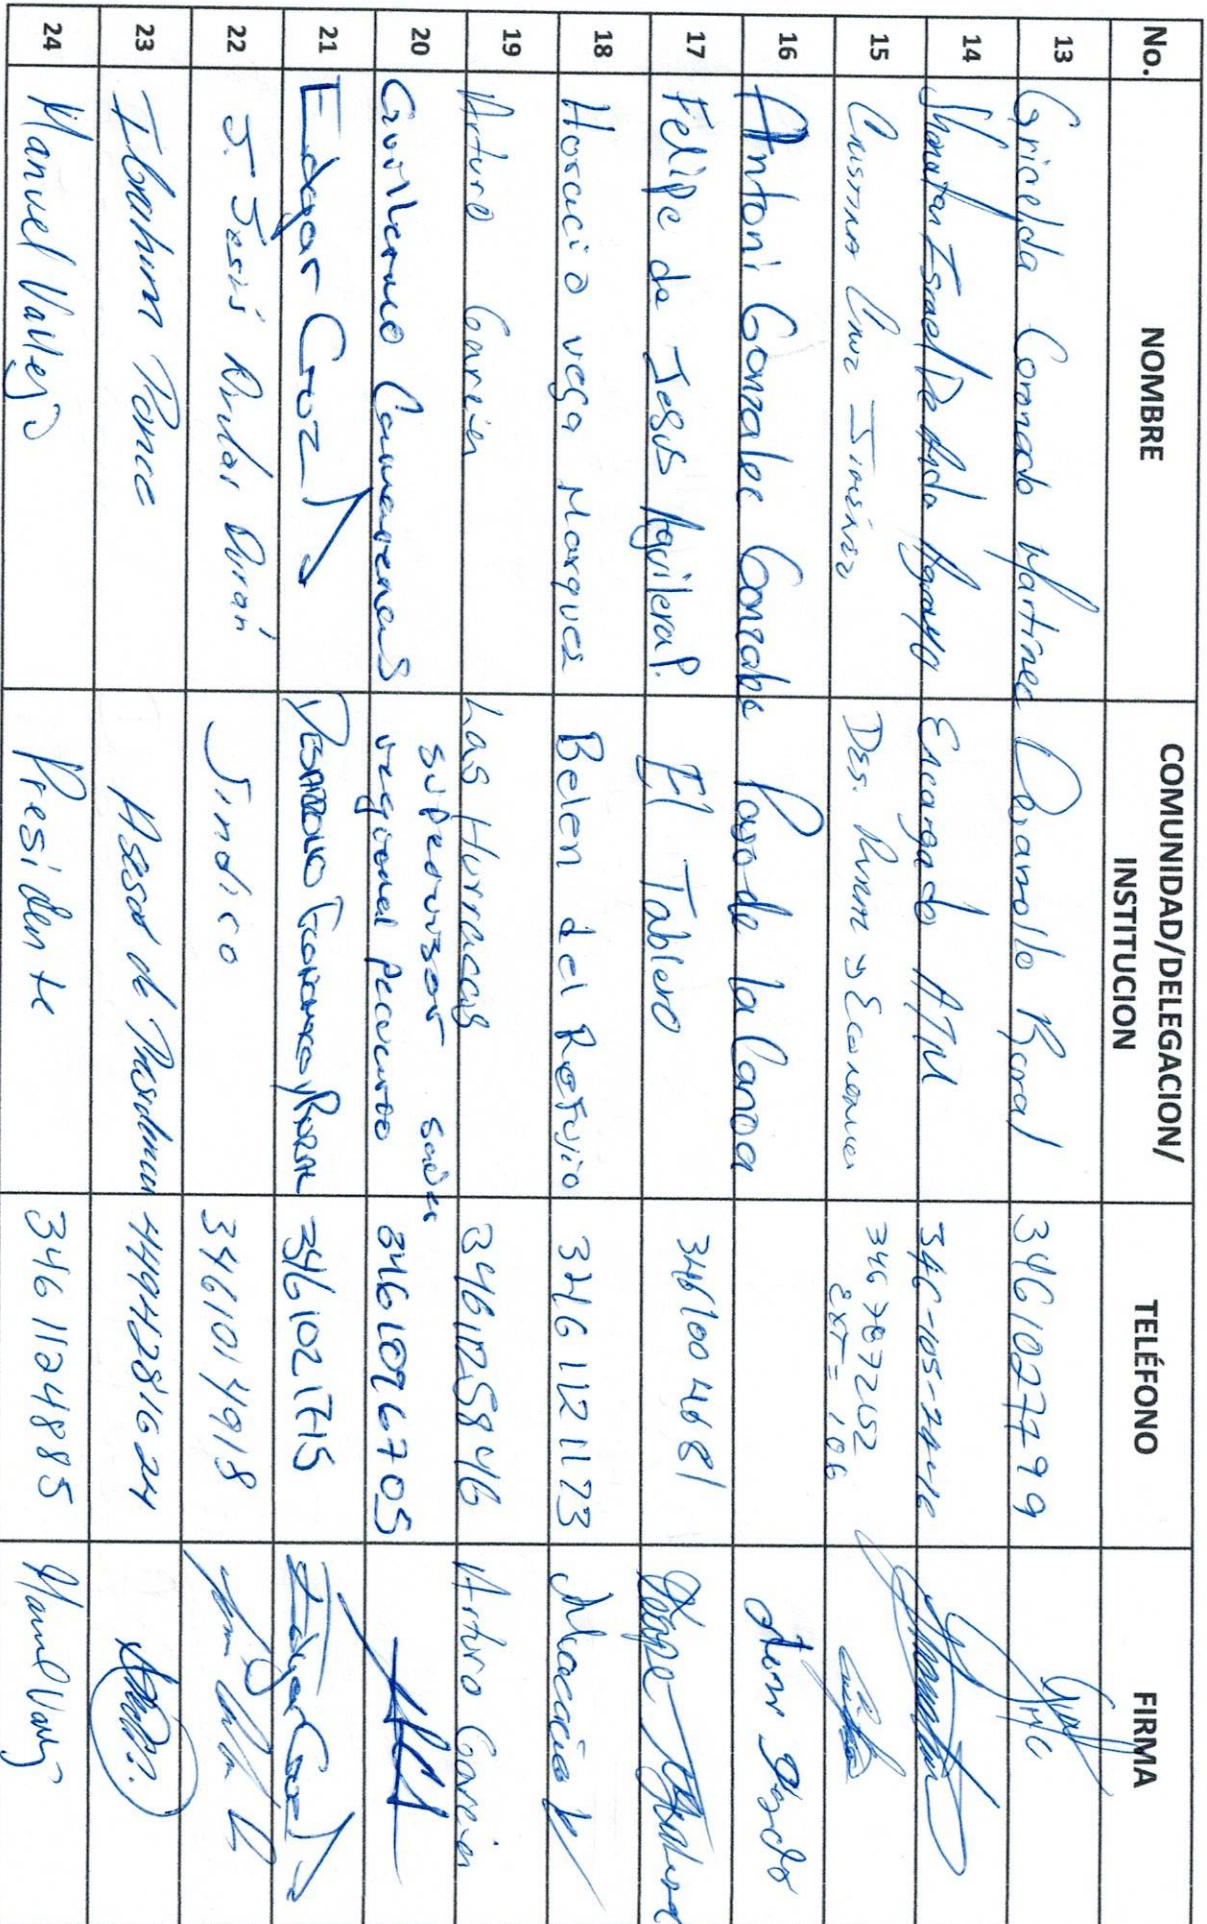 No. NOMBRE COMUNIDAD/DELEGACION/ INSTITUCION TELÉFONO FIRMA
13 Gricelda Coronado Martinez Desarrollo Rural 3461027799
14 Jhonatan Israel De Anda Aguayo Encargado ATM 346-105-2416
15 Cristina Cruz Jiménez Des. Rural y Economico 346 787 2152 EXT= 106
16 Antoni Gonzalee Gonzales Paso de la Canoa
17 Felipe de Jesus Aguilera P. El Tablero 3461004681 Felipe
18 Horacio vega Marquez Belen del Refujio 3461121123
19 Arturo Garcia Las Hurracas 3461125846 Arturo Garcia
20 Guillermo Camarena S supervisor regional pecuario 3461096705
21 Edgar Cruz DESARROLLO Economico y RURAL 3461021715 Edgar Cruz
22 J. Jesús Durán Sindico 3461014918
23 Ibrahim Ponce Asesor de Presidencia 4494281624
24 Manuel Vallejo Presidente 3461124885 Manuel